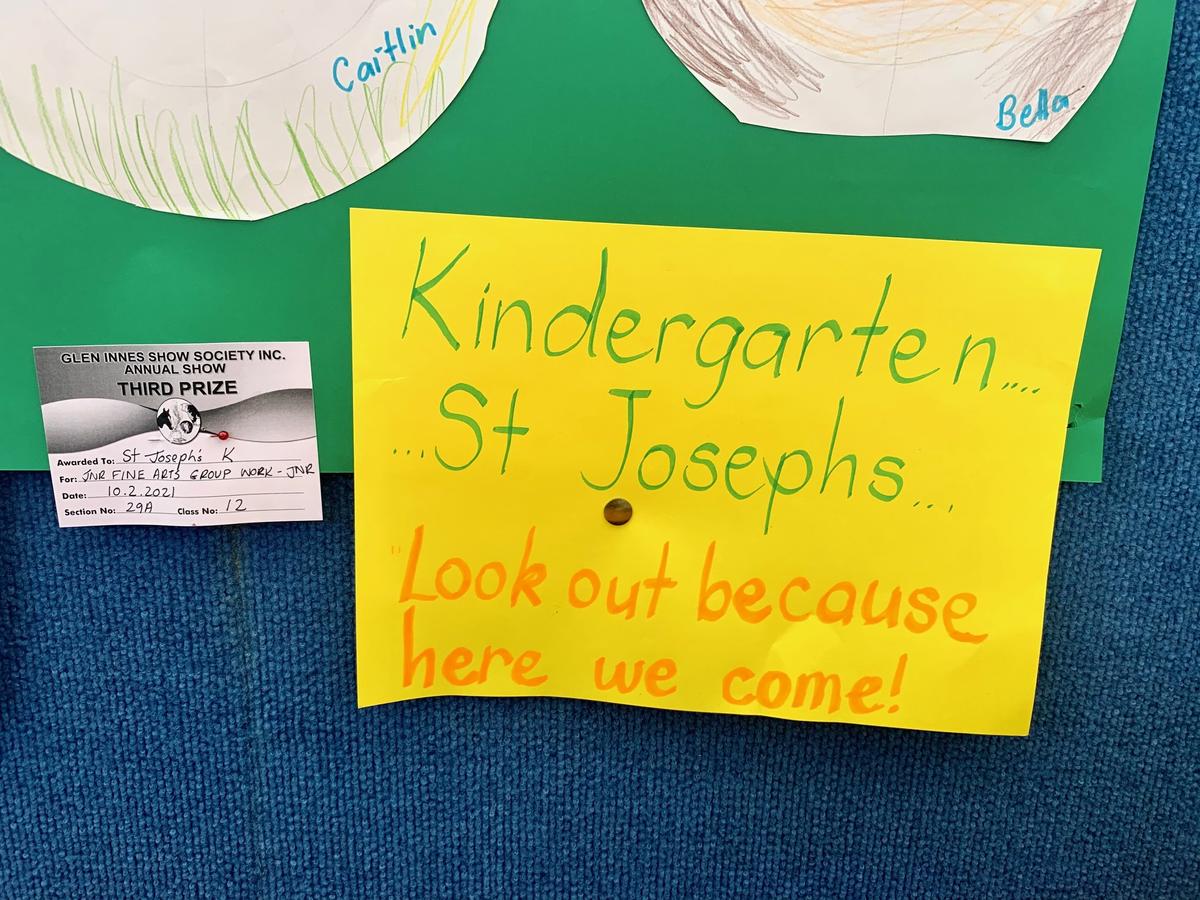 Caitlin
Bella
GLEN INNES SHOW SOCIETY INC.
ANNUAL SHOW
THIRD PRIZE
Awarded To: St Joseph's K
For: JNR FINE ARTS GROUP WORK - JNR
Date: 10.2.2021
Section No: 29A Class No: 12
Kindergarten....
...St Josephs...
"Look out because
here we come!